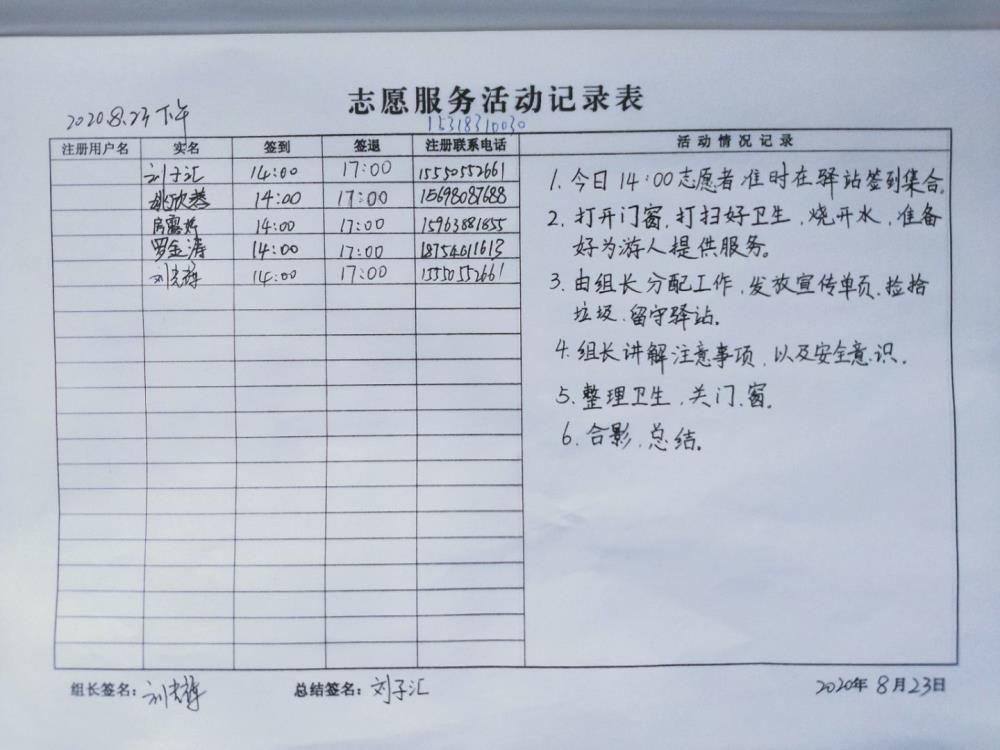 志愿服务活动记录表
2020.8.23下午
15318310030
注册用户名 实名 签到 签退 注册联系电话 活动情况记录
刘子汇 14:00 17:00 15550552661
姚欣蕊 14:00 17:00 15698087688
房露 14:00 17:00 15963881855
罗金涛 14:00 17:00 18754611613
14:00 17:00 15550552661
1. 今日14:00志愿者准时在驿站签到集合。
2. 打开门窗,打扫好卫生,烧开水,准备
好为游人提供服务。
3. 由组长分配工作、发放宣传单页、捡拾
垃圾、留守驿站。
4. 组长讲解注意事项,以及安全意识。
5. 整理卫生,关门、窗。
6. 合影、总结。
组长签名: 总结签名:刘子汇 2020年8月23日